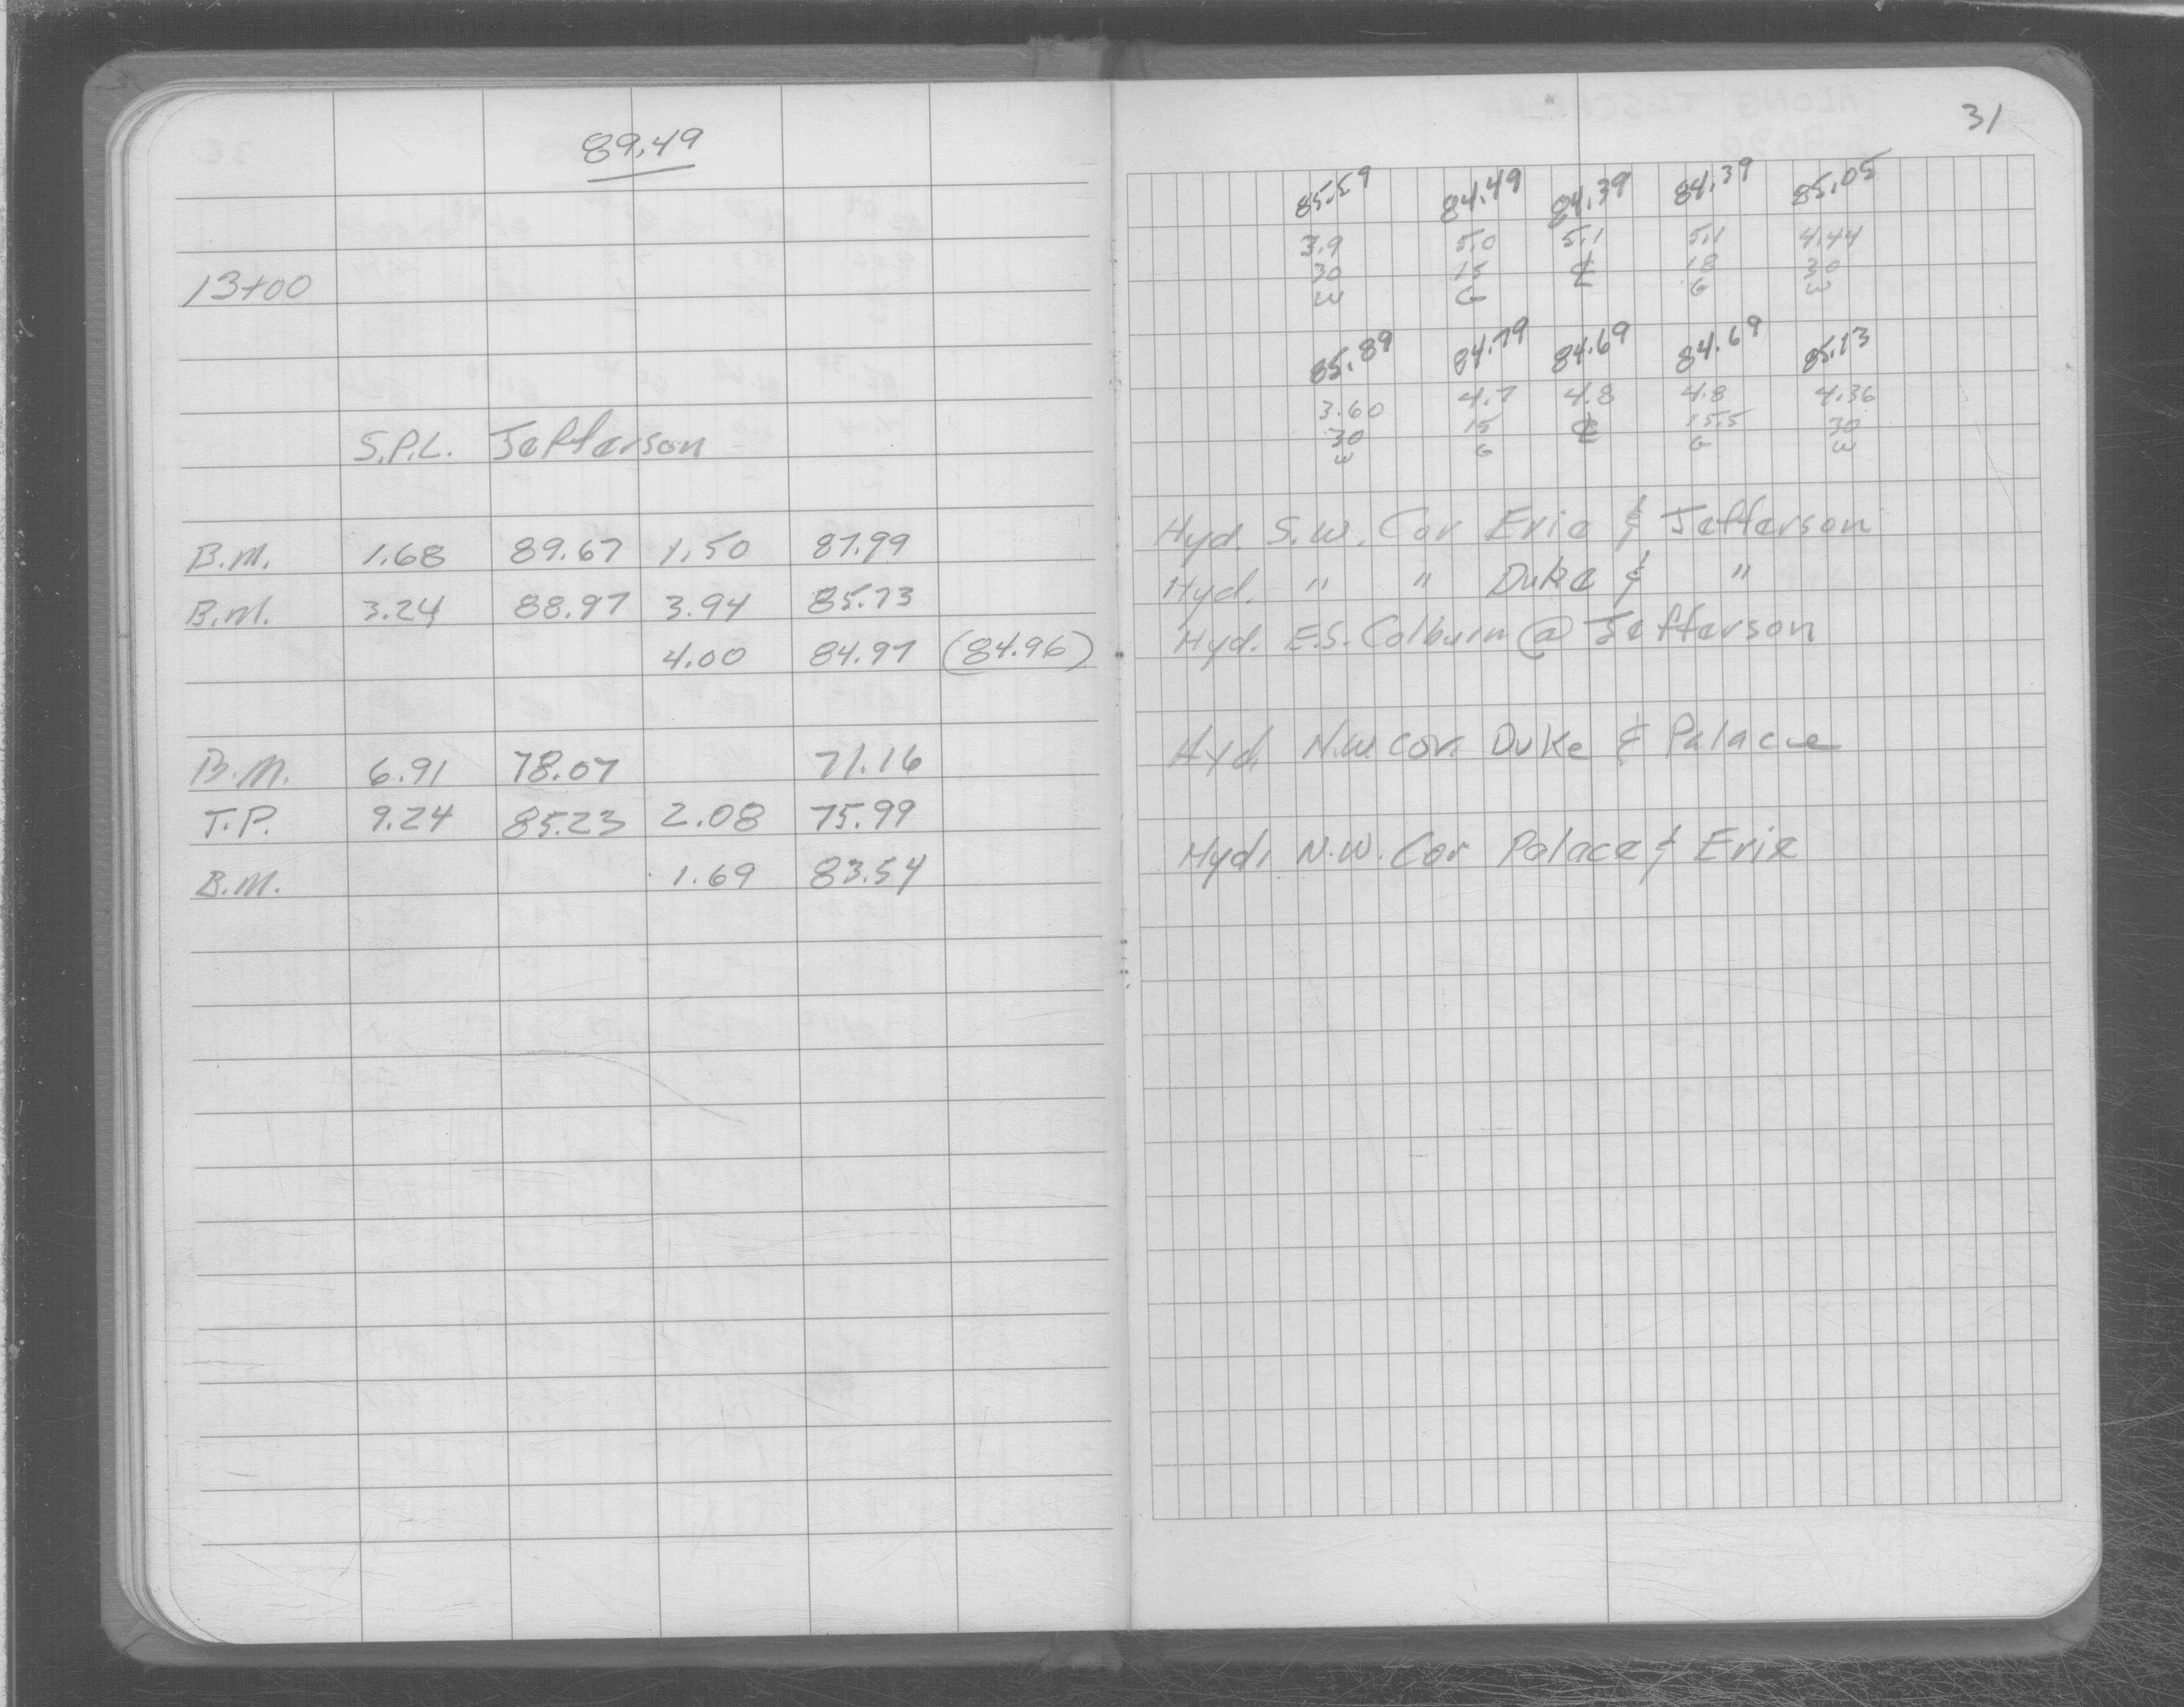 89.49
13+00
S.P.L. Jefferson
B.M. 1.68 89.67 1.50 87.99
B.M. 3.24 88.97 3.94 85.73
4.00 84.97 (84.96)
B.M. 6.91 78.07 71.16
T.P. 9.24 85.23 2.08 75.99
B.M. 1.69 83.54
31
85.59 84.49 84.39 84.39 85.05
3.9 5.0 5.1 5.1 4.44
30 15 ℄ 18 30
W G G W
85.89 84.79 84.69 84.69 85.13
3.60 4.7 4.8 4.8 4.36
30 15 ℄ 15.5 30
W G G W
Hyd. S.W. Cor Erie & Jefferson
Hyd. " " Duke & "
Hyd. E.S. Colburn @ Jefferson
Hyd. N.W. cor. Duke & Palace
Hyd. N.W. Cor Palace & Erie